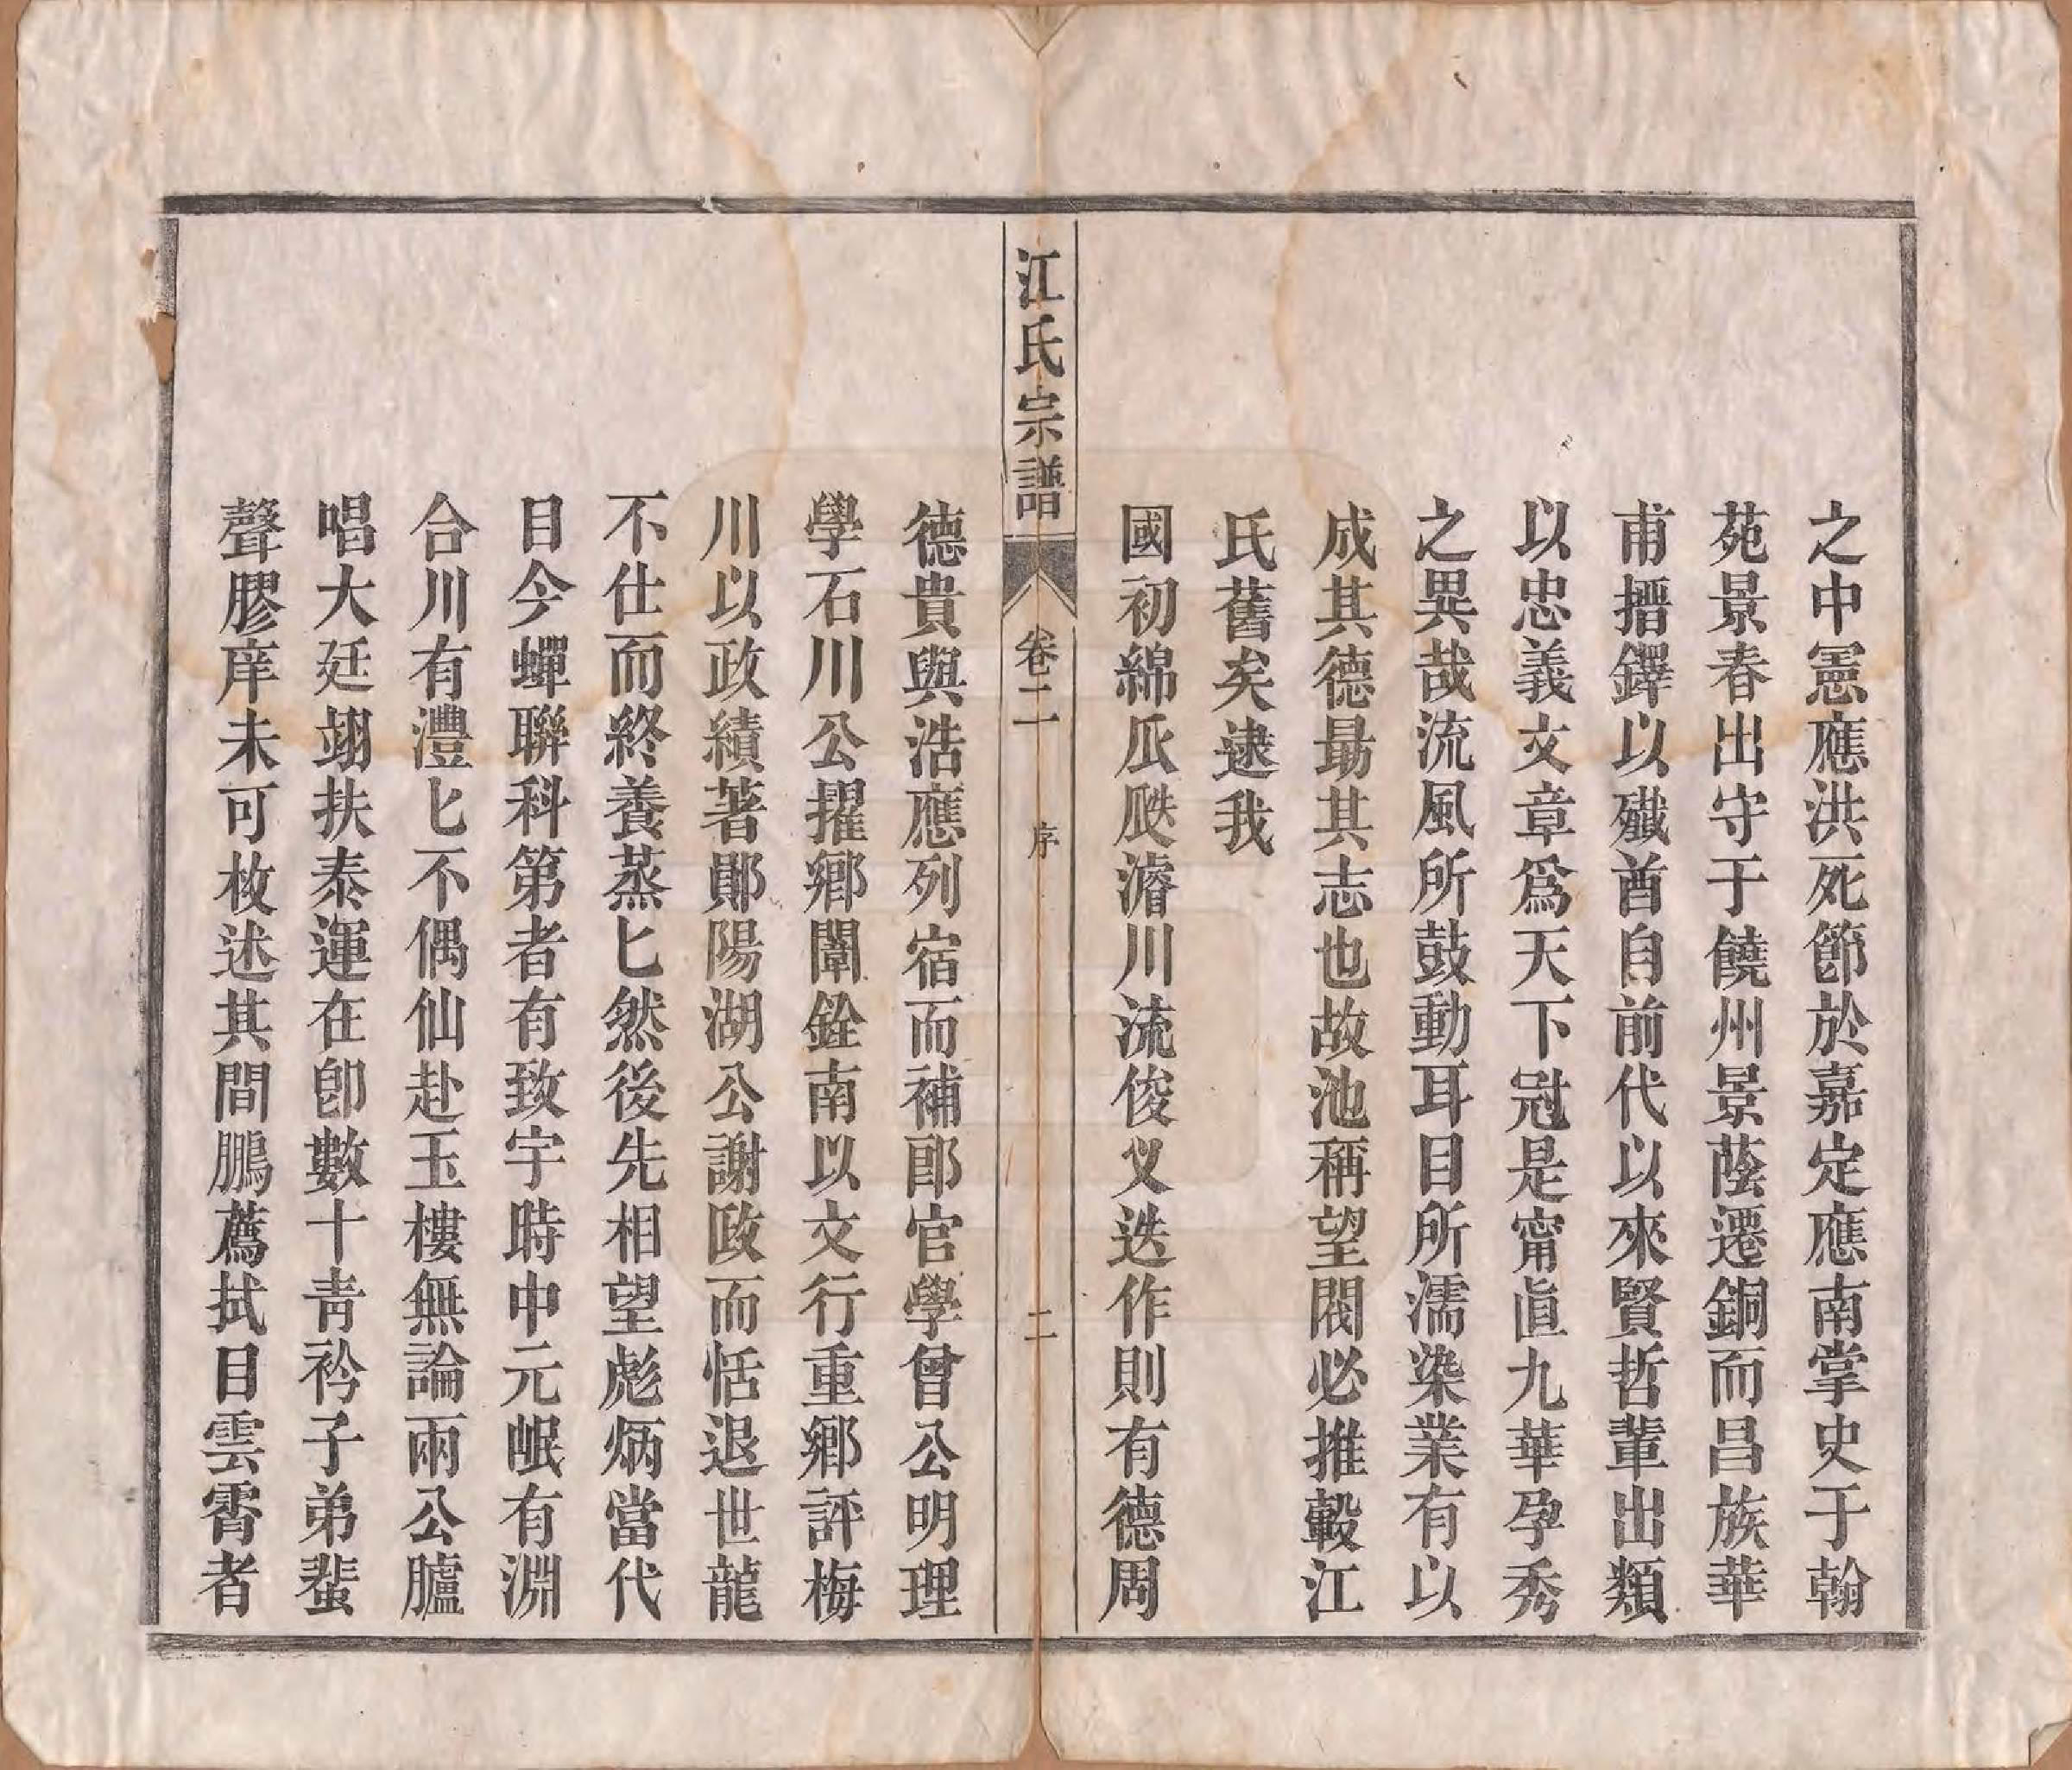 之中憲應洪死節於嘉定應南掌史于翰
苑景春出守于饒州景蔭遷銅而昌族華
甫搢鐸以殲酋自前代以來賢哲輩出類
以忠義文章爲天下冠是甯眞九華孕秀
之異哉流風所鼓動耳目所濡染業有以
成其德最其志也故池稱望閥必推轂江
氏舊矣逮我
國初綿瓜瓞濬川流俊乂迭作則有德周
江氏宗譜 卷二 序 二
德貴與浩應列宿而補郎官學曾公明理
學石川公擢鄉闈銓南以文行重鄉評梅
川以政績著鄖陽湖公謝政而恬退世龍
不仕而終養蒸匕然後先相望彪炳當代
目今蟬聯科第者有致宇時中元岷有淵
台川有澧匕不偶仙赴玉樓無論兩公臚
唱大廷翊扶泰運在卽數十靑衿子弟蜚
聲膠庠未可枚述其間鵬薦拭目雲霄者